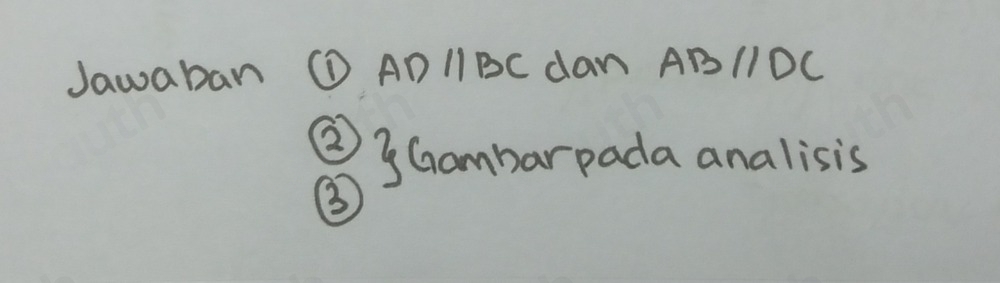 Jawaban ① AD//BC dan AB//DC
② } Gambar pada analisis
③